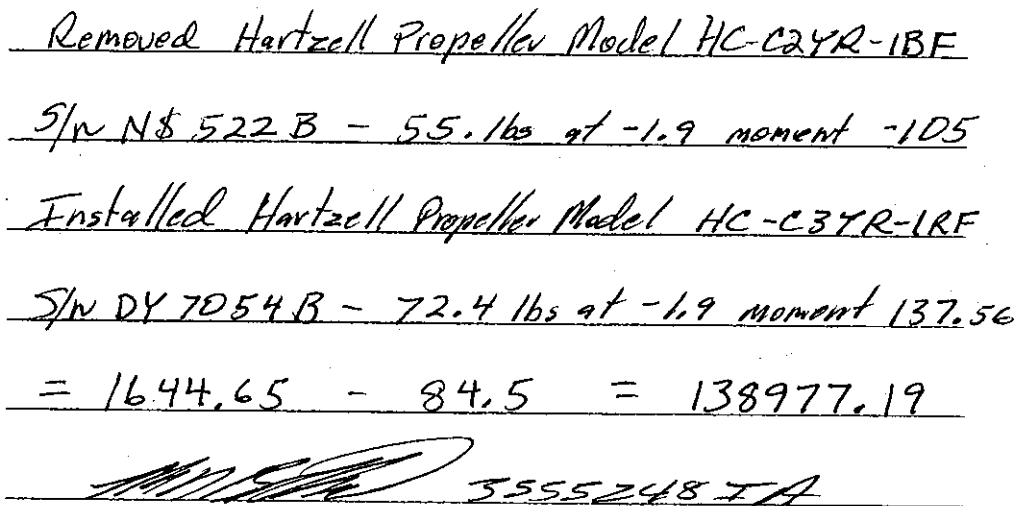 Removed Hartzell Propeller Model HC-C2YR-1BF
S/N N$ 522 B - 55. lbs at -1.9 moment -105
Installed Hartzell Propeller Model HC-C3YR-1RF
S/N DY 7054 B - 72.4 lbs at -1.9 moment 137.56
= 1644.65 - 84.5 = 138977.19
3555248 IA